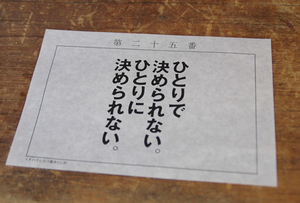 第二十五番
ひとりで
決められない。
ひとりに
決められない。